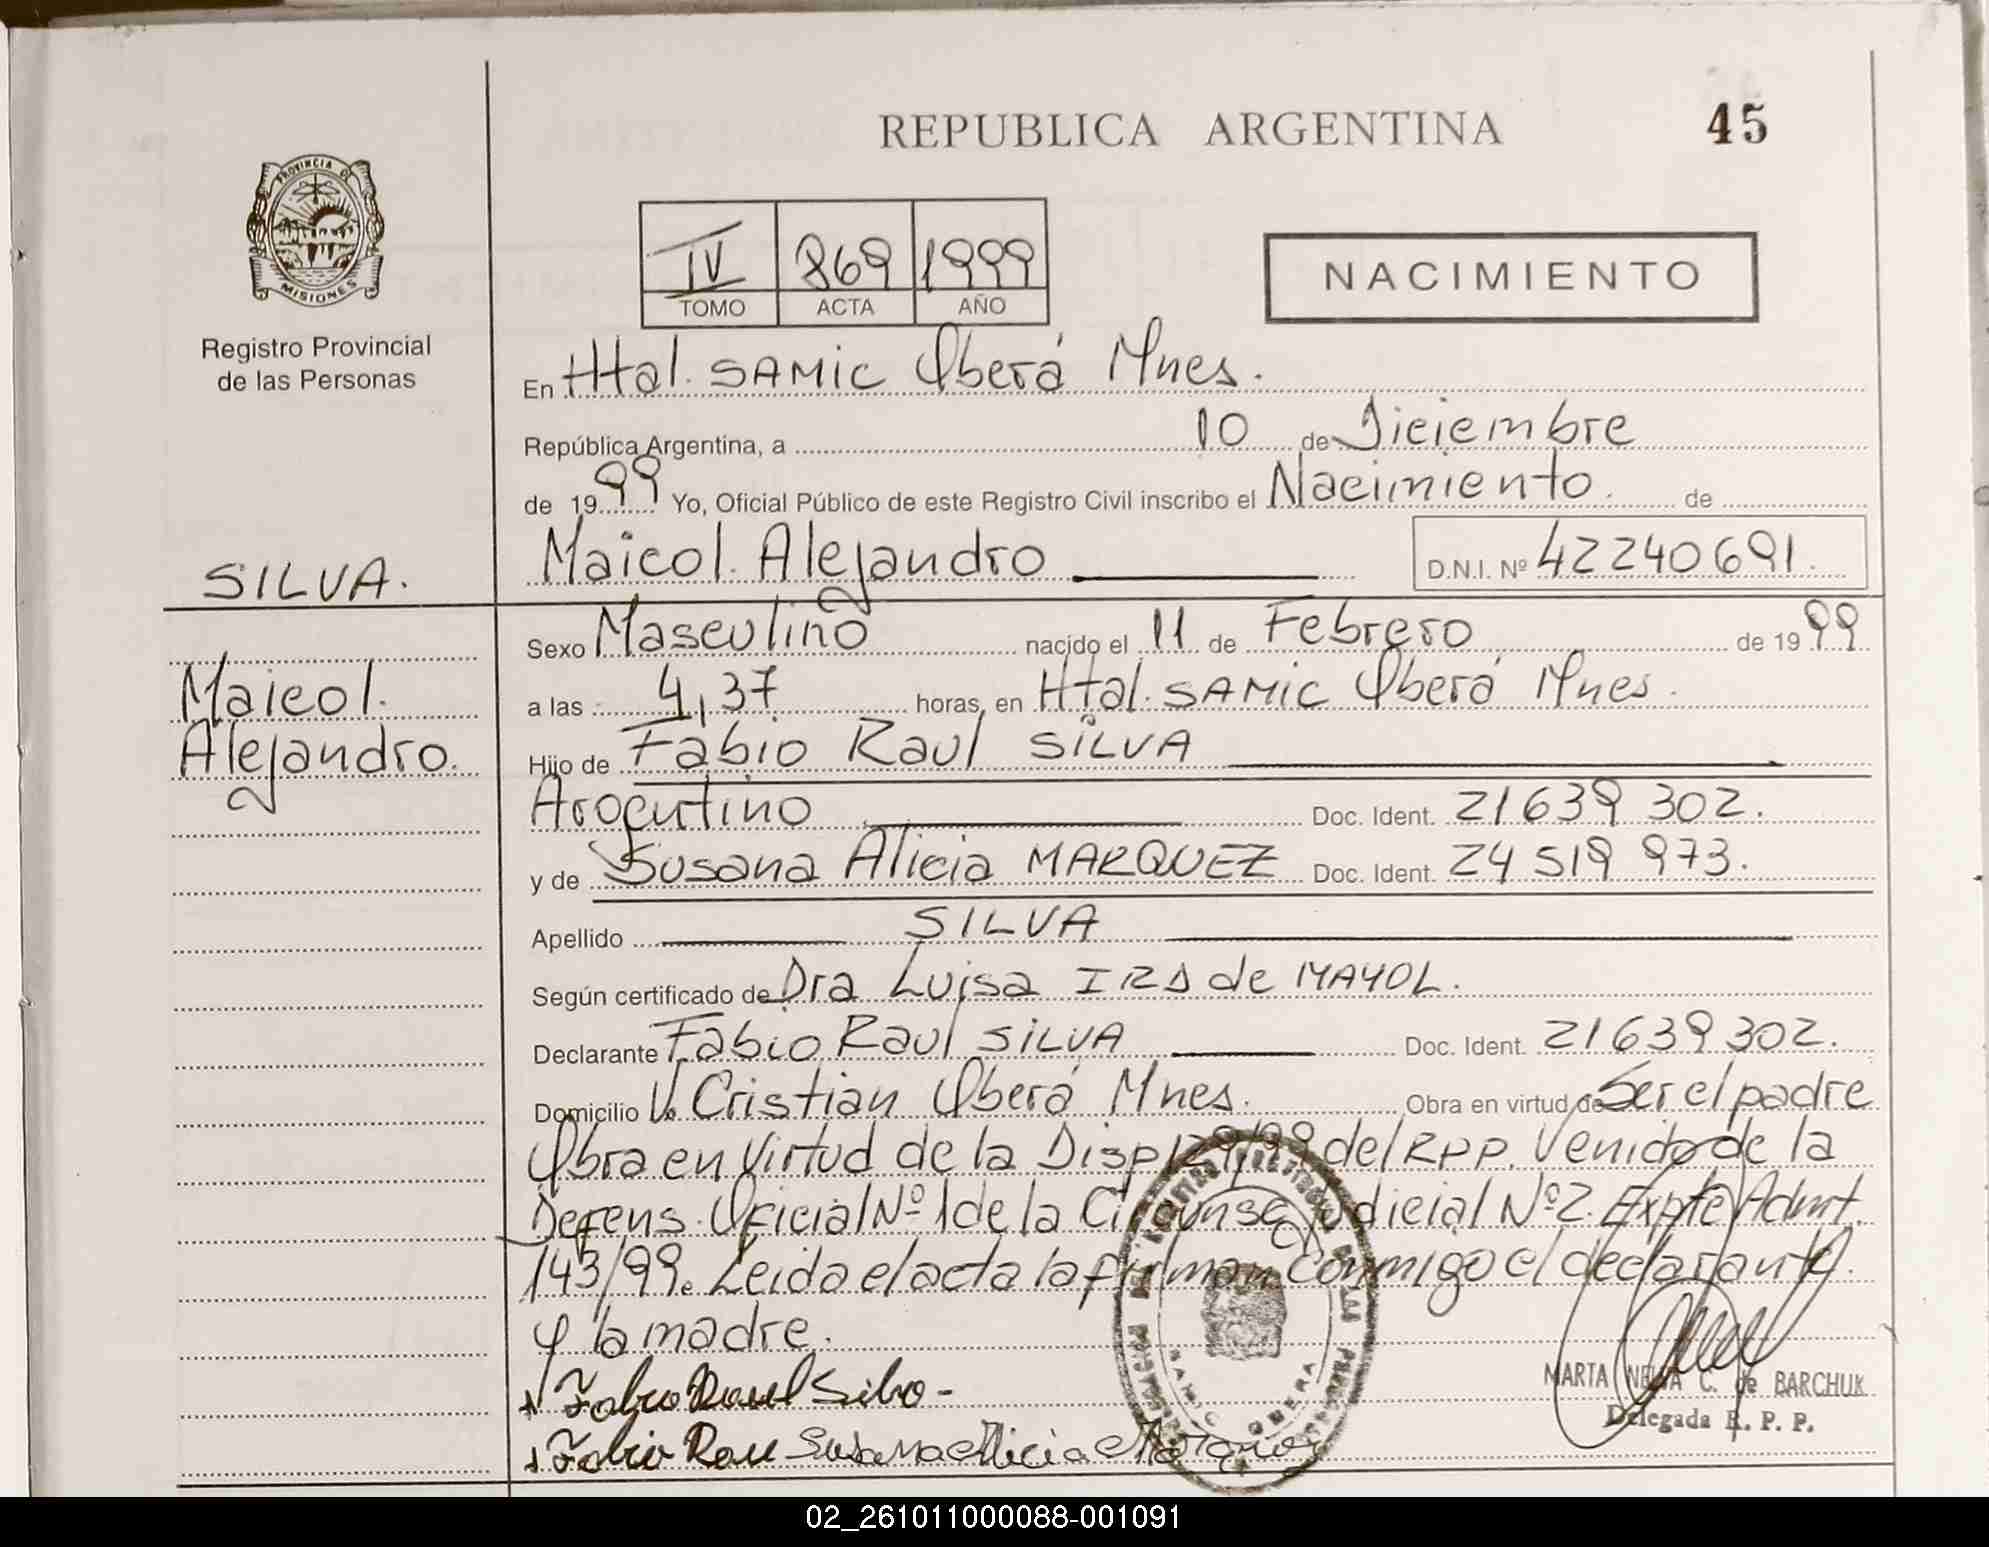 REPUBLICA ARGENTINA
45
PROVINCIA DE
MISIONES
Registro Provincial
de las Personas
IV 869 1999
TOMO ACTA AÑO
NACIMIENTO
En Htal. SAMIC Oberá Mnes.
República Argentina, a 10 de Diciembre
de 1999 Yo, Oficial Público de este Registro Civil inscribo el Nacimiento. de
SILVA.
Maicol Alejandro D.N.I. Nº 42240691.
Maicol.
Alejandro.
Sexo Masculino nacido el 11 de Febrero de 1999
a las 4,37 horas, en Htal. SAMIC Oberá Mnes.
Hijo de Fabio Raul SILVA
Argentino Doc. Ident. 21639302.
y de Susana Alicia MARQUEZ Doc. Ident. 24519973.
Apellido SILVA
Según certificado de Dra Luisa de MAYOL.
Declarante Fabio Raul SILVA Doc. Ident. 21639302.
Domicilio Vº Cristian Oberá Mnes. Obra en virtud de Ser el padre
Obra en Virtud de la Disp 129/99 del RPP. Venido de la
Defens. Oficial Nº 1 de la Circunsc Judicial Nº 2. Expte Admt.
143/99. Leida el acta la firman conmigo el declarante
y la madre.
Fabio Raul Silva -
Fabio Susana Alicia
OBERA
MARTA C. de BARCHUK
Delegada R. P. P.
02_261011000088-001091